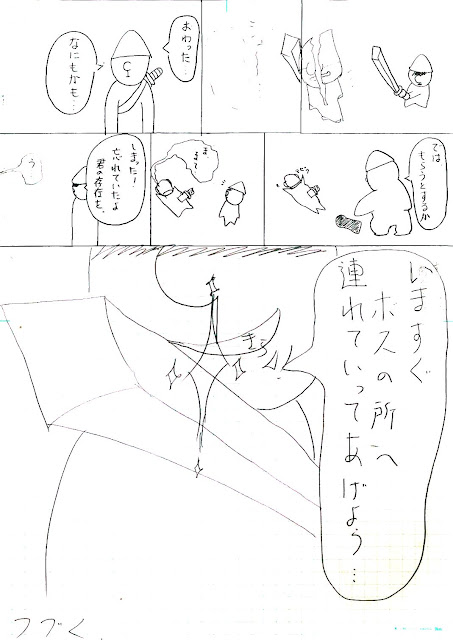 おわった…
なにもかも…
では
もらうとするか
まて
しまったー!
忘れていたよ
君の存在を。
う
いますぐ
ボスの所へ
連れていってあげよう…
きら
つづく